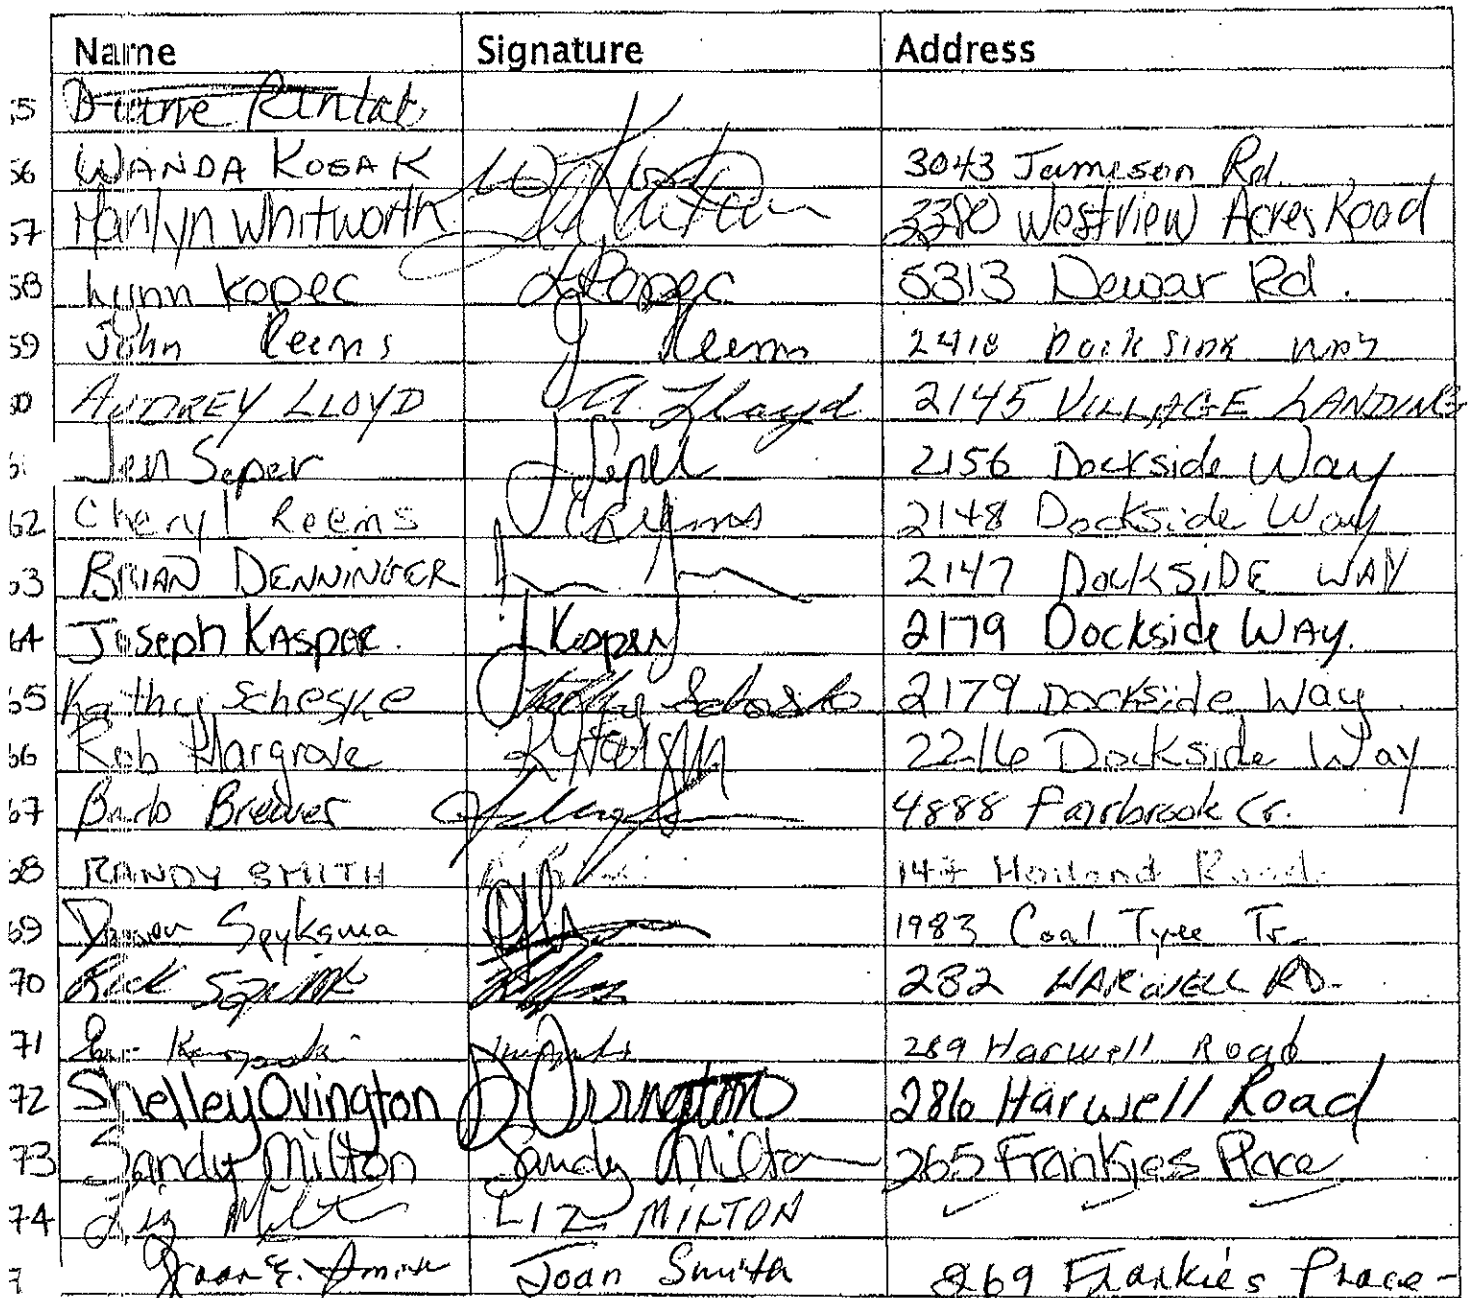 Name Signature Address
55 Diane
56 WANDA KOSAK 3043 Jameson Rd.
57 Marilyn Whitworth 3380 Westview Acres Road
58 Lynn Kopec L Kopec 5313 Dewar Rd.
59 John Reems J Reems 2418
60 AUDREY LLOYD A. Lloyd 2145 VILLAGE LANDING
61 Jen Soper J Soper 2156 Dockside Way
62 Cheryl Reems C Reems 2148 Dockside Way
63 BRIAN DENNINGER 2147 DOCKSIDE WAY
64 JOSEPH KASPER. J Kasper 2179 Dockside WAY.
65 Kathy Scheske Kathy Scheske 2179 Dockside Way.
66 Rob Hargrove 2216 Dockside Way
67 Barb Brewer 4888 Fairbrook Cr.
68 RANDY SMITH 147 Road
69 Spyksma 1983 Coal Tyee Tr.
70 Rick 282 HARWELL RD.
71 289 Harwell Road
72 Shelley Ovington S Ovington 286 Harwell Road
73 Sandy Milton Sandy Milton 265 Frankies Place
74 Liz Milton LIZ MILTON
7 Joan E. Smith Joan Smith 269 Frankie's Place -